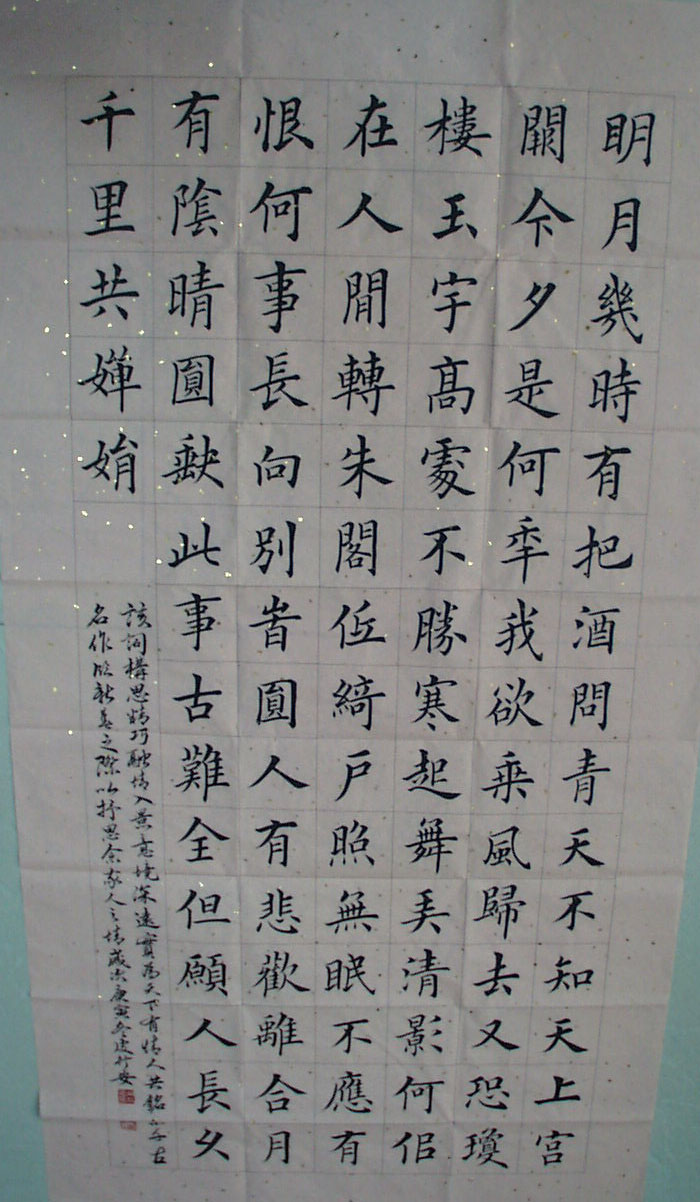 明月幾時有把酒問青天不知天上宮
闕今夕是何秊我欲乗風歸去又恐瓊
樓玉宇高處不勝寒起舞弄清影何佀
在人間轉朱閣低綺戶照無眠不應有
恨何事長向別旹圓人有悲歡離合月
有陰晴圓缺此事古難全但願人長久
千里共嬋娟
該詞構思精巧融情入景意境深遠實為天下有情人共銘千古
名作臨新春之際以抒思念家人之情歲次庚寅冬